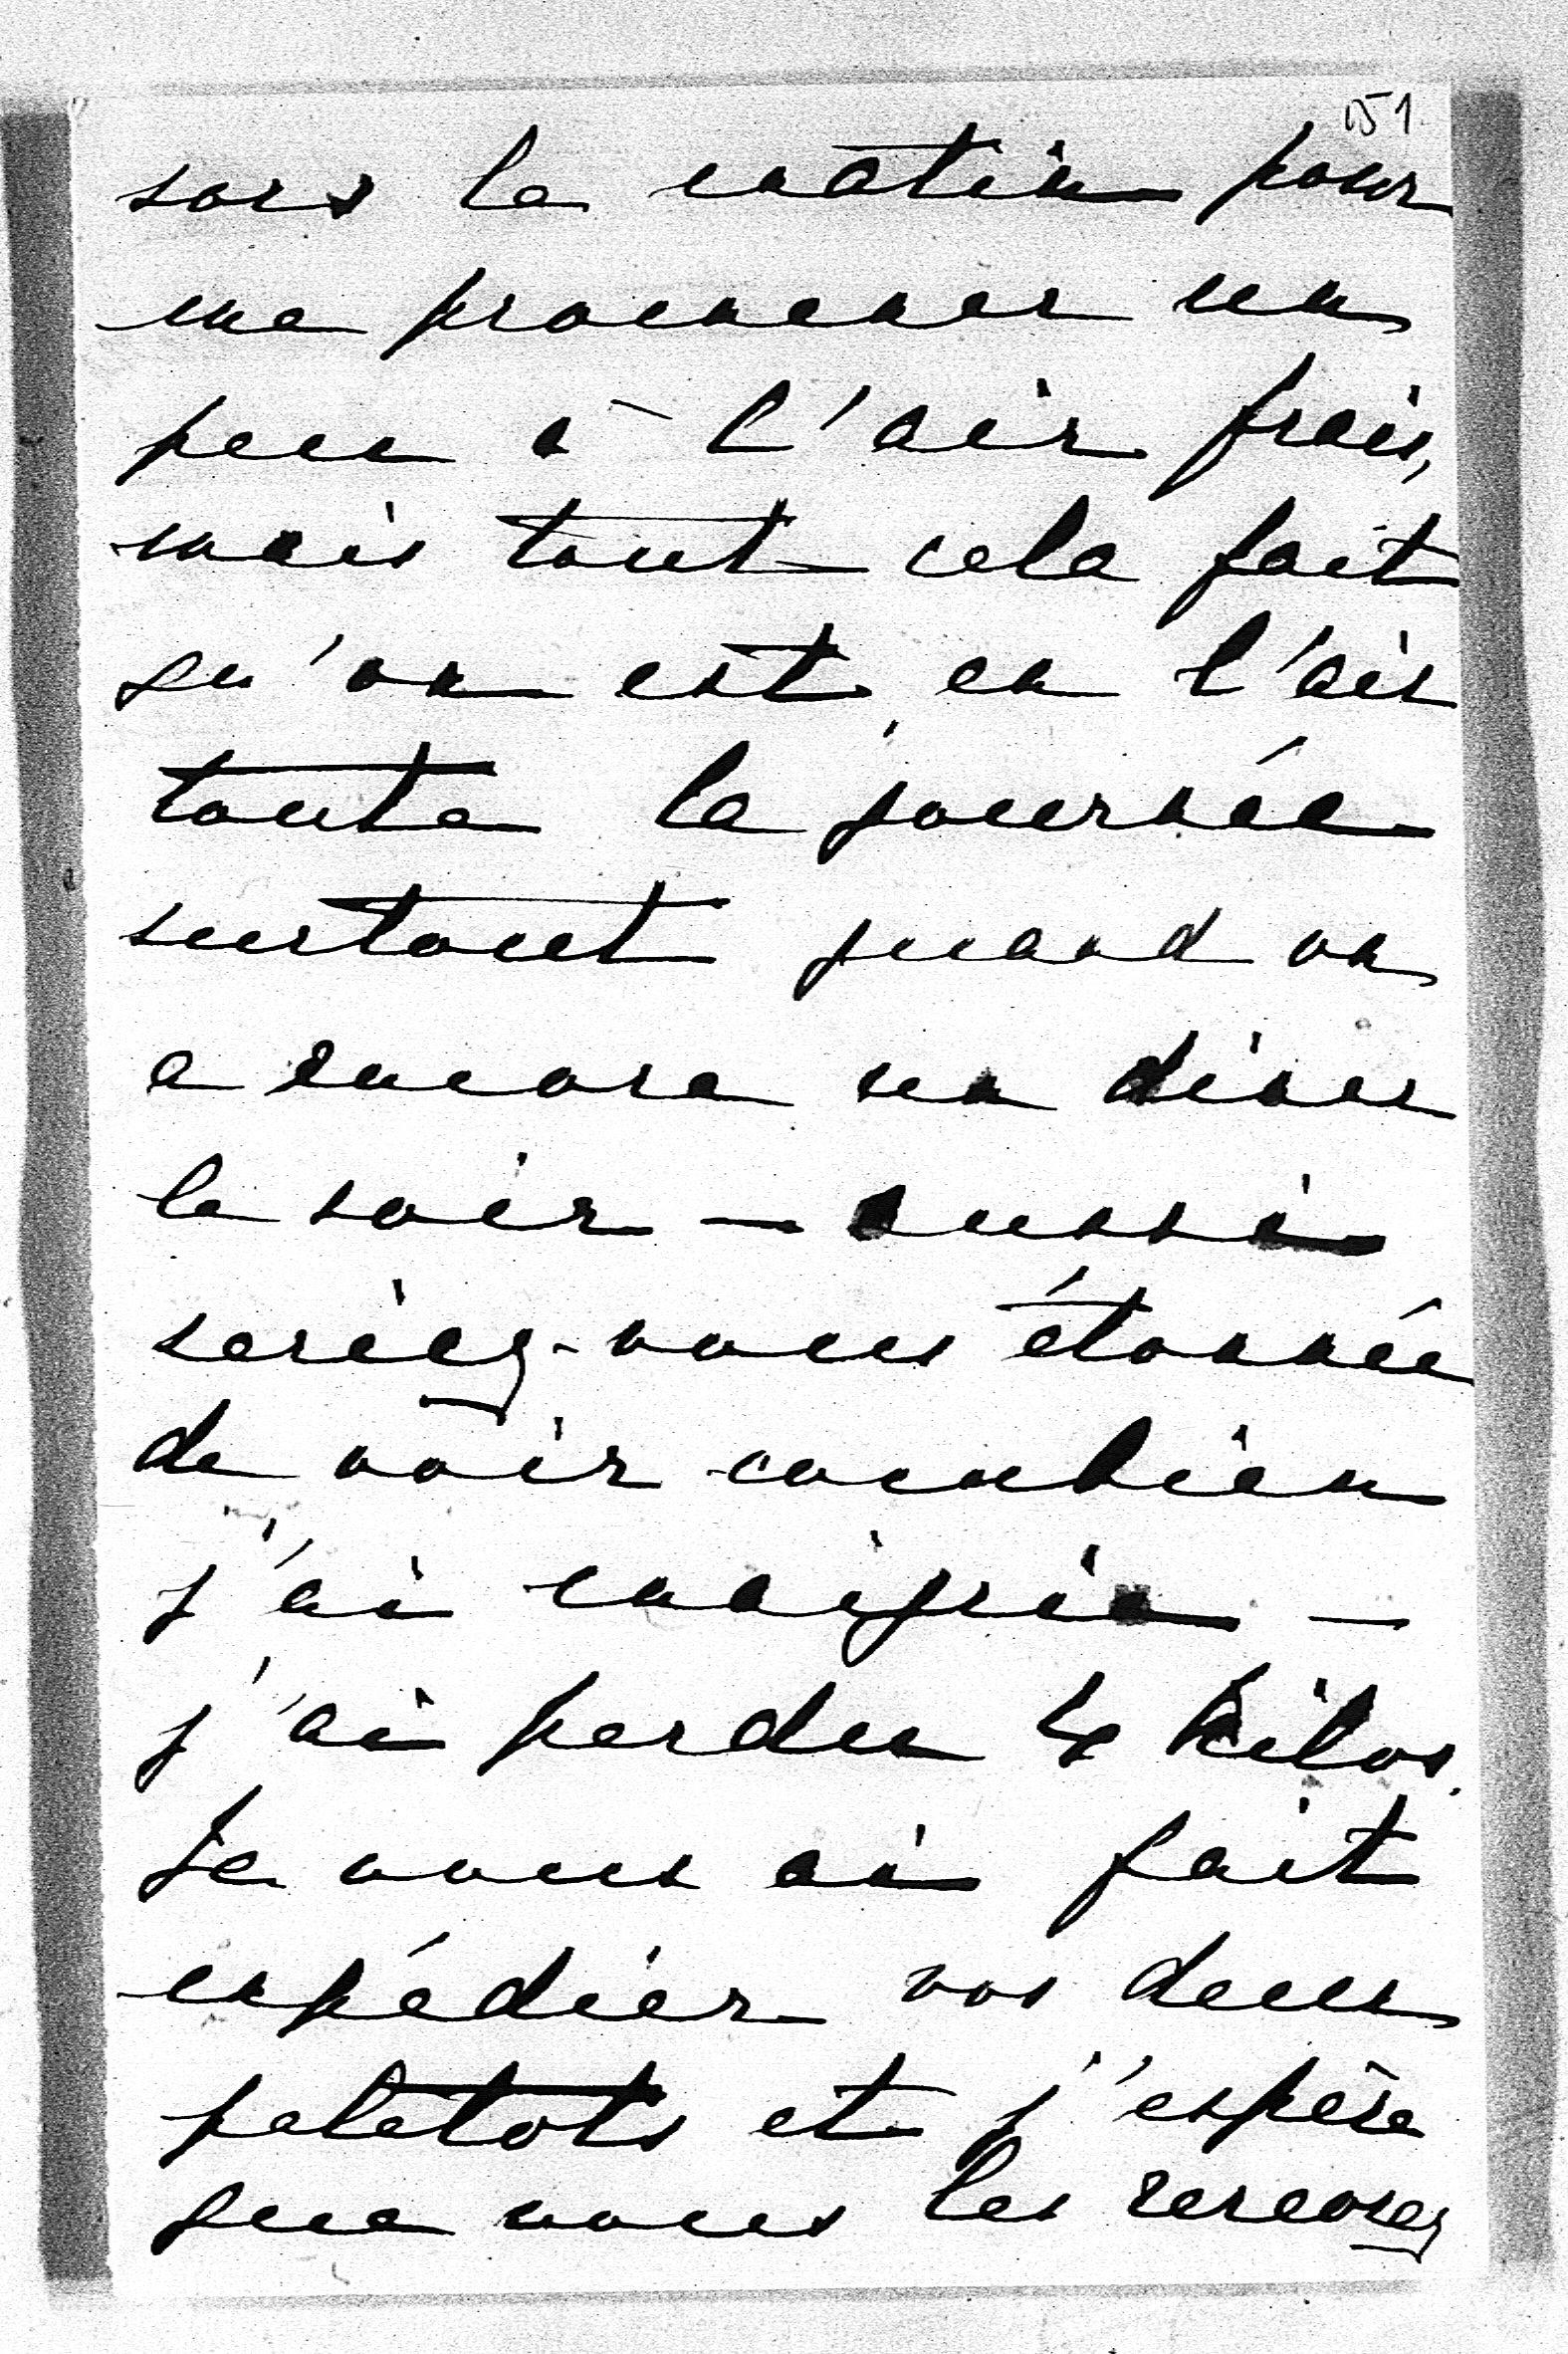 151
sors le matin pour
me promener un
peu à l'air frais,
mais tout cela fait
qu'on est en l'air
toute la journée
surtout quand on
a encore un diner
le soir — aussi
seriez-vous étonnée
de voir combien
j'ai maigri —
j'ai perdu 4 kilos.
Je vous ai fait
expédier vos deux
paletots et j'espère
que vous les recevrez